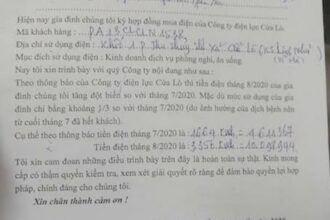 Hiện nay gia đình chúng tôi ký hợp đồng mua điện của Công ty điện lực Cửa Lò
Mã khách hàng : PA13CLCLN1538
Địa chỉ sử dụng điện: Khối 1. P Thu Thủy thị xã Cửa Lò
Mục đích sử dụng điện : Kinh doanh dịch vụ phòng nghỉ, ăn uống.
Nay tôi xin trình bày với quý Công ty nội dung như sau :
Theo thông báo của Công ty điện lực Cửa Lò thì tiền điện tháng 8/2020 của gia
đình chúng tôi tăng đột biến so với tháng 7/2020. Mặc dù mức sử dụng của gia
đình chỉ bằng khoảng 1/3 so với tháng 7/2020. (do ảnh hưởng của dịch bệnh nên
từ cuối tháng 7 đã hết khách).
Cụ thể theo thông báo tiền điện tháng 7/2020 là : 1664 = 4.611.367
Tiền điện tháng 8/2020 là : 3.356 = 10.098.944
Tôi xin cam đoan những điều trình bày trên đây là hoàn toàn sự thật. Kính mong
cấp có thẩm quyền kiểm tra, xem xét giải quyết rõ ràng để đảm bảo quyền lợi hợp
pháp, chính đáng cho chúng tôi.
Xin chân thành cảm ơn !